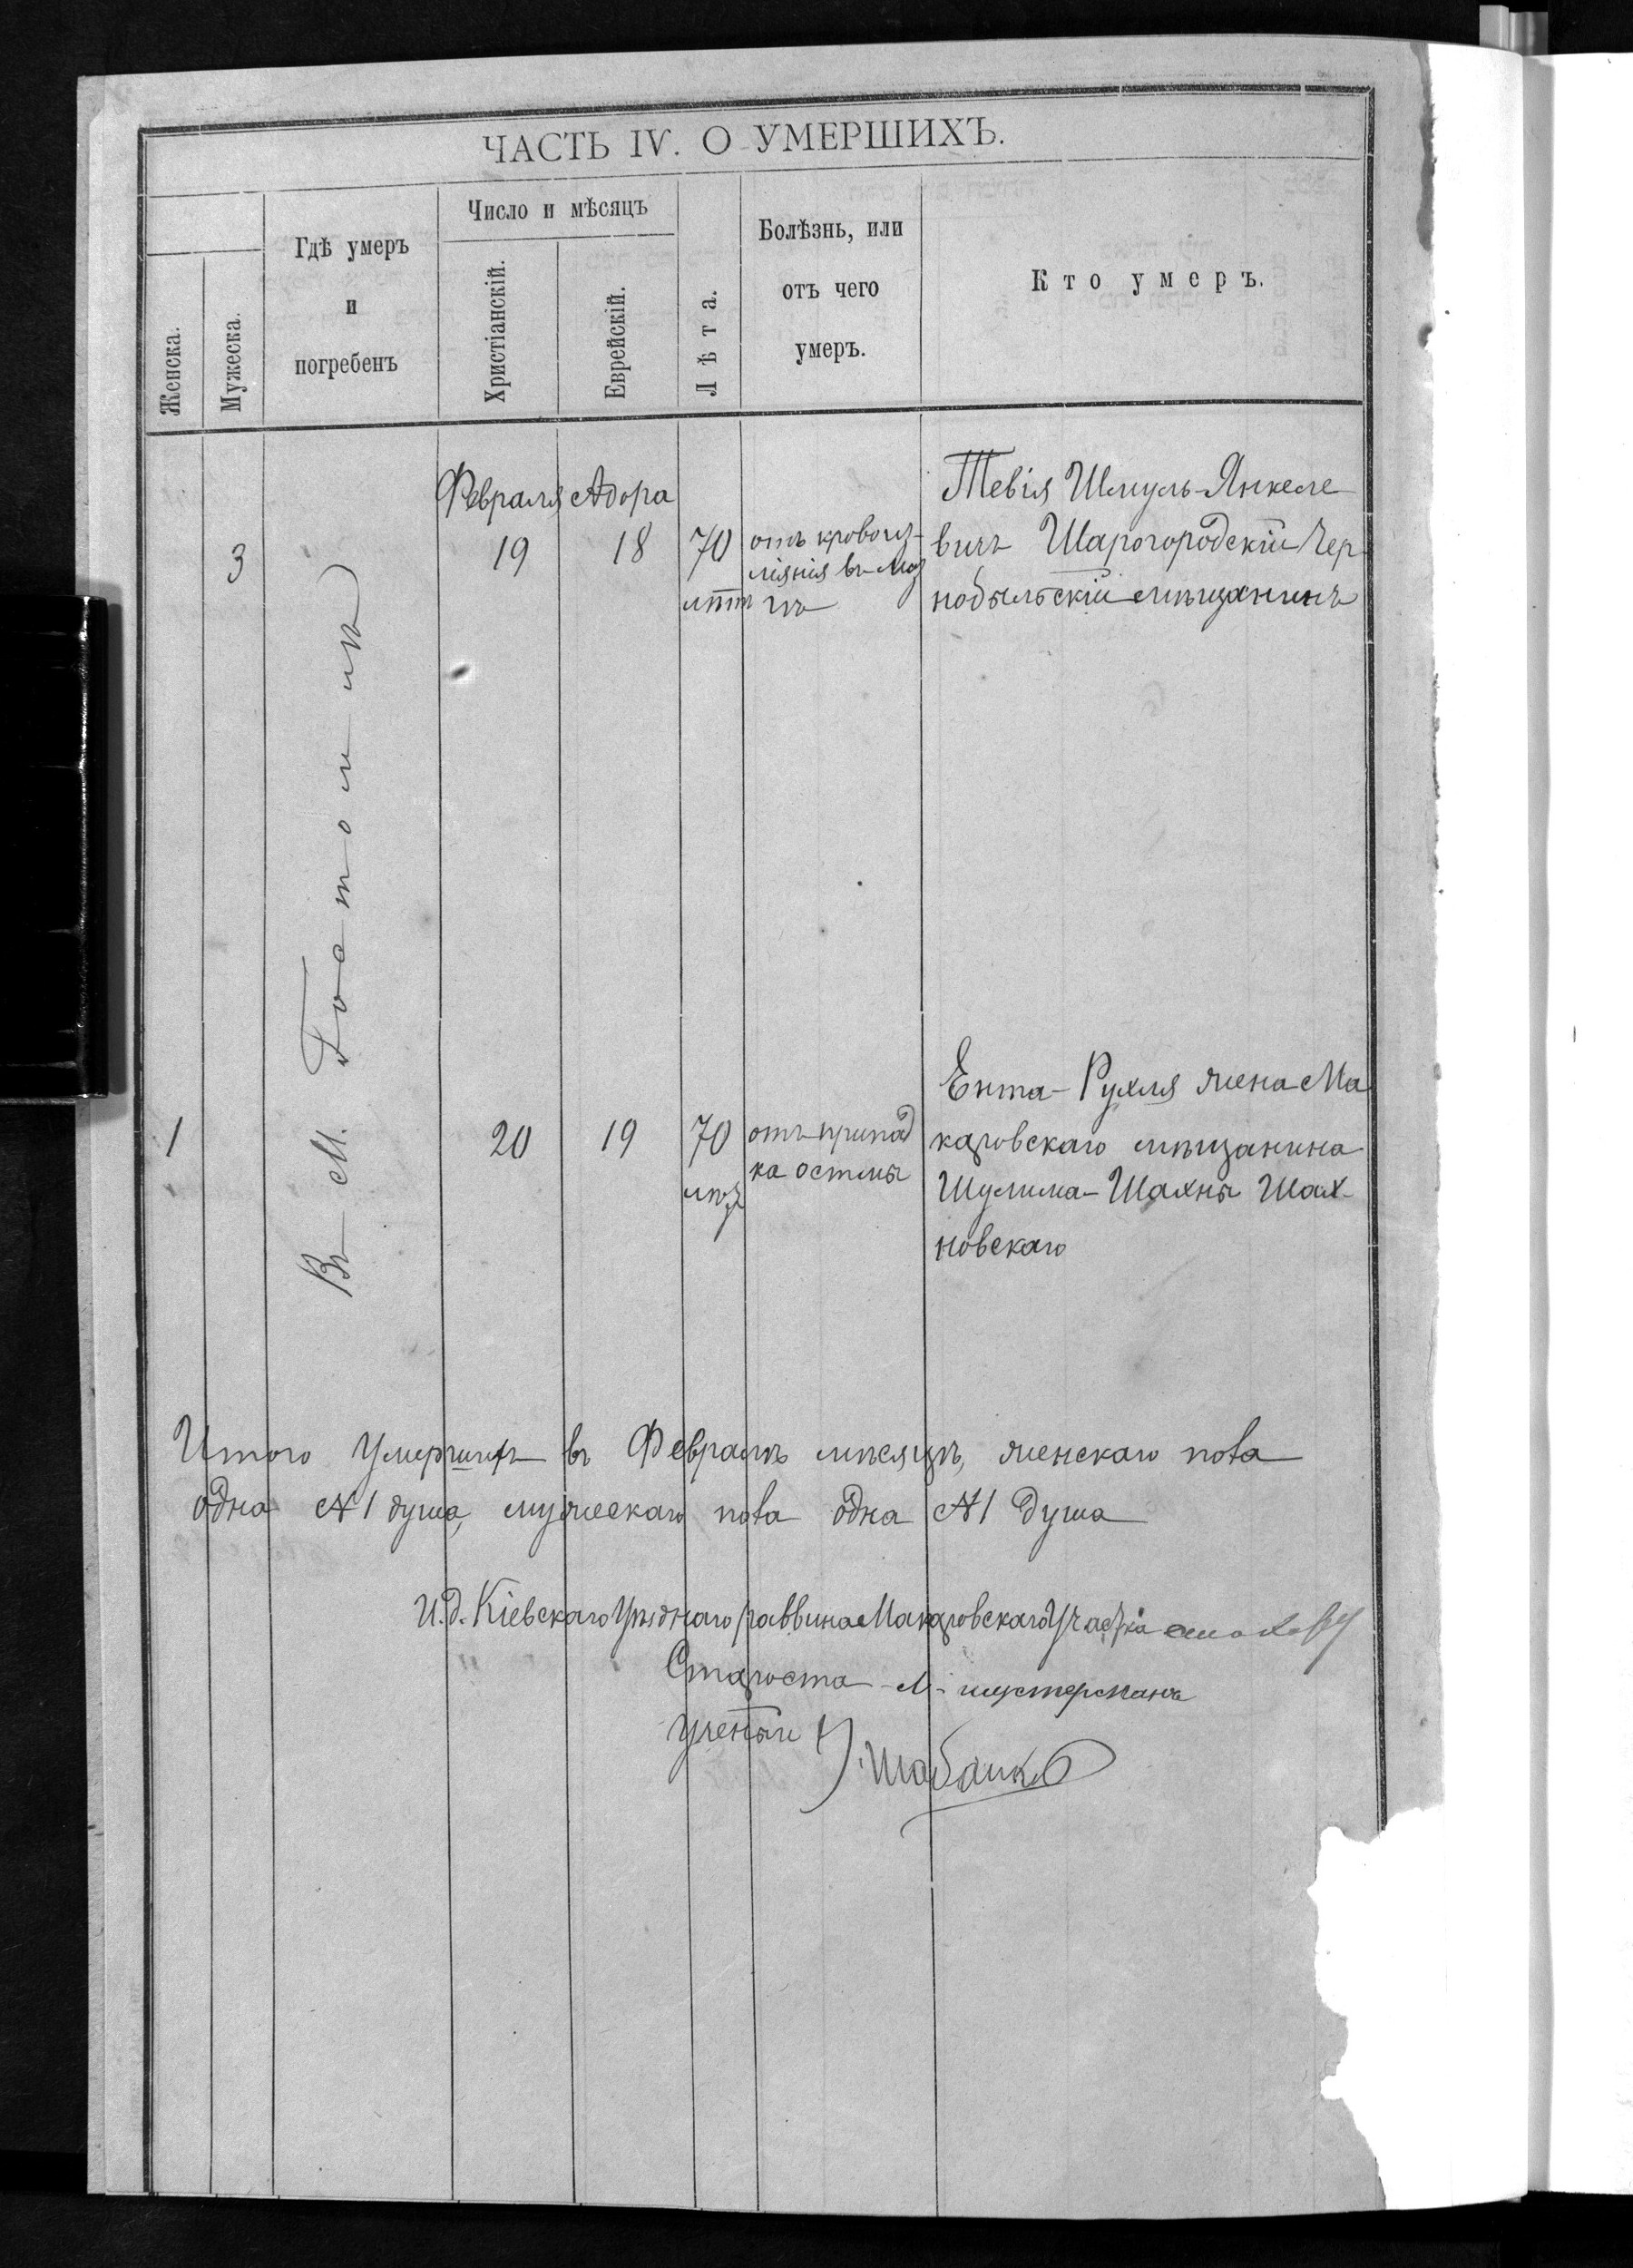 ЧАСТЬ IV. О УМЕРШИХЪ.
Женска.
Мужеска.
Гдѣ умеръ
и
погребенъ
Число и мѣсяцъ
Христіанскій.
Еврейскій.
Лѣта.
Болѣзнь, или
отъ чего
умеръ.
Кто умеръ.
Въ М.
Февраля Адора
3 19 18 70
лѣтъ
отъ кровоиз-
ліянія въ моз
гъ
Тевія Шмуль-Янкеле
вичъ Шарогородскій Чер
нобыльскій мѣщанинъ
1 20 19 70
отъ припад
ка остмы
Ента-Рухля жена Ма
каровскаго мѣщанина
Шулима-Шахны Шах-
новскаго
Итого умершихъ въ Февралѣ мѣсяцѣ, женскаго пола
одна №1 душа, мужескаго пола одна №1 душа
И.д. Кіевскаго Уѣзднаго раввина Макаровскаго Участка
Староста М. шустерманъ
Ученый